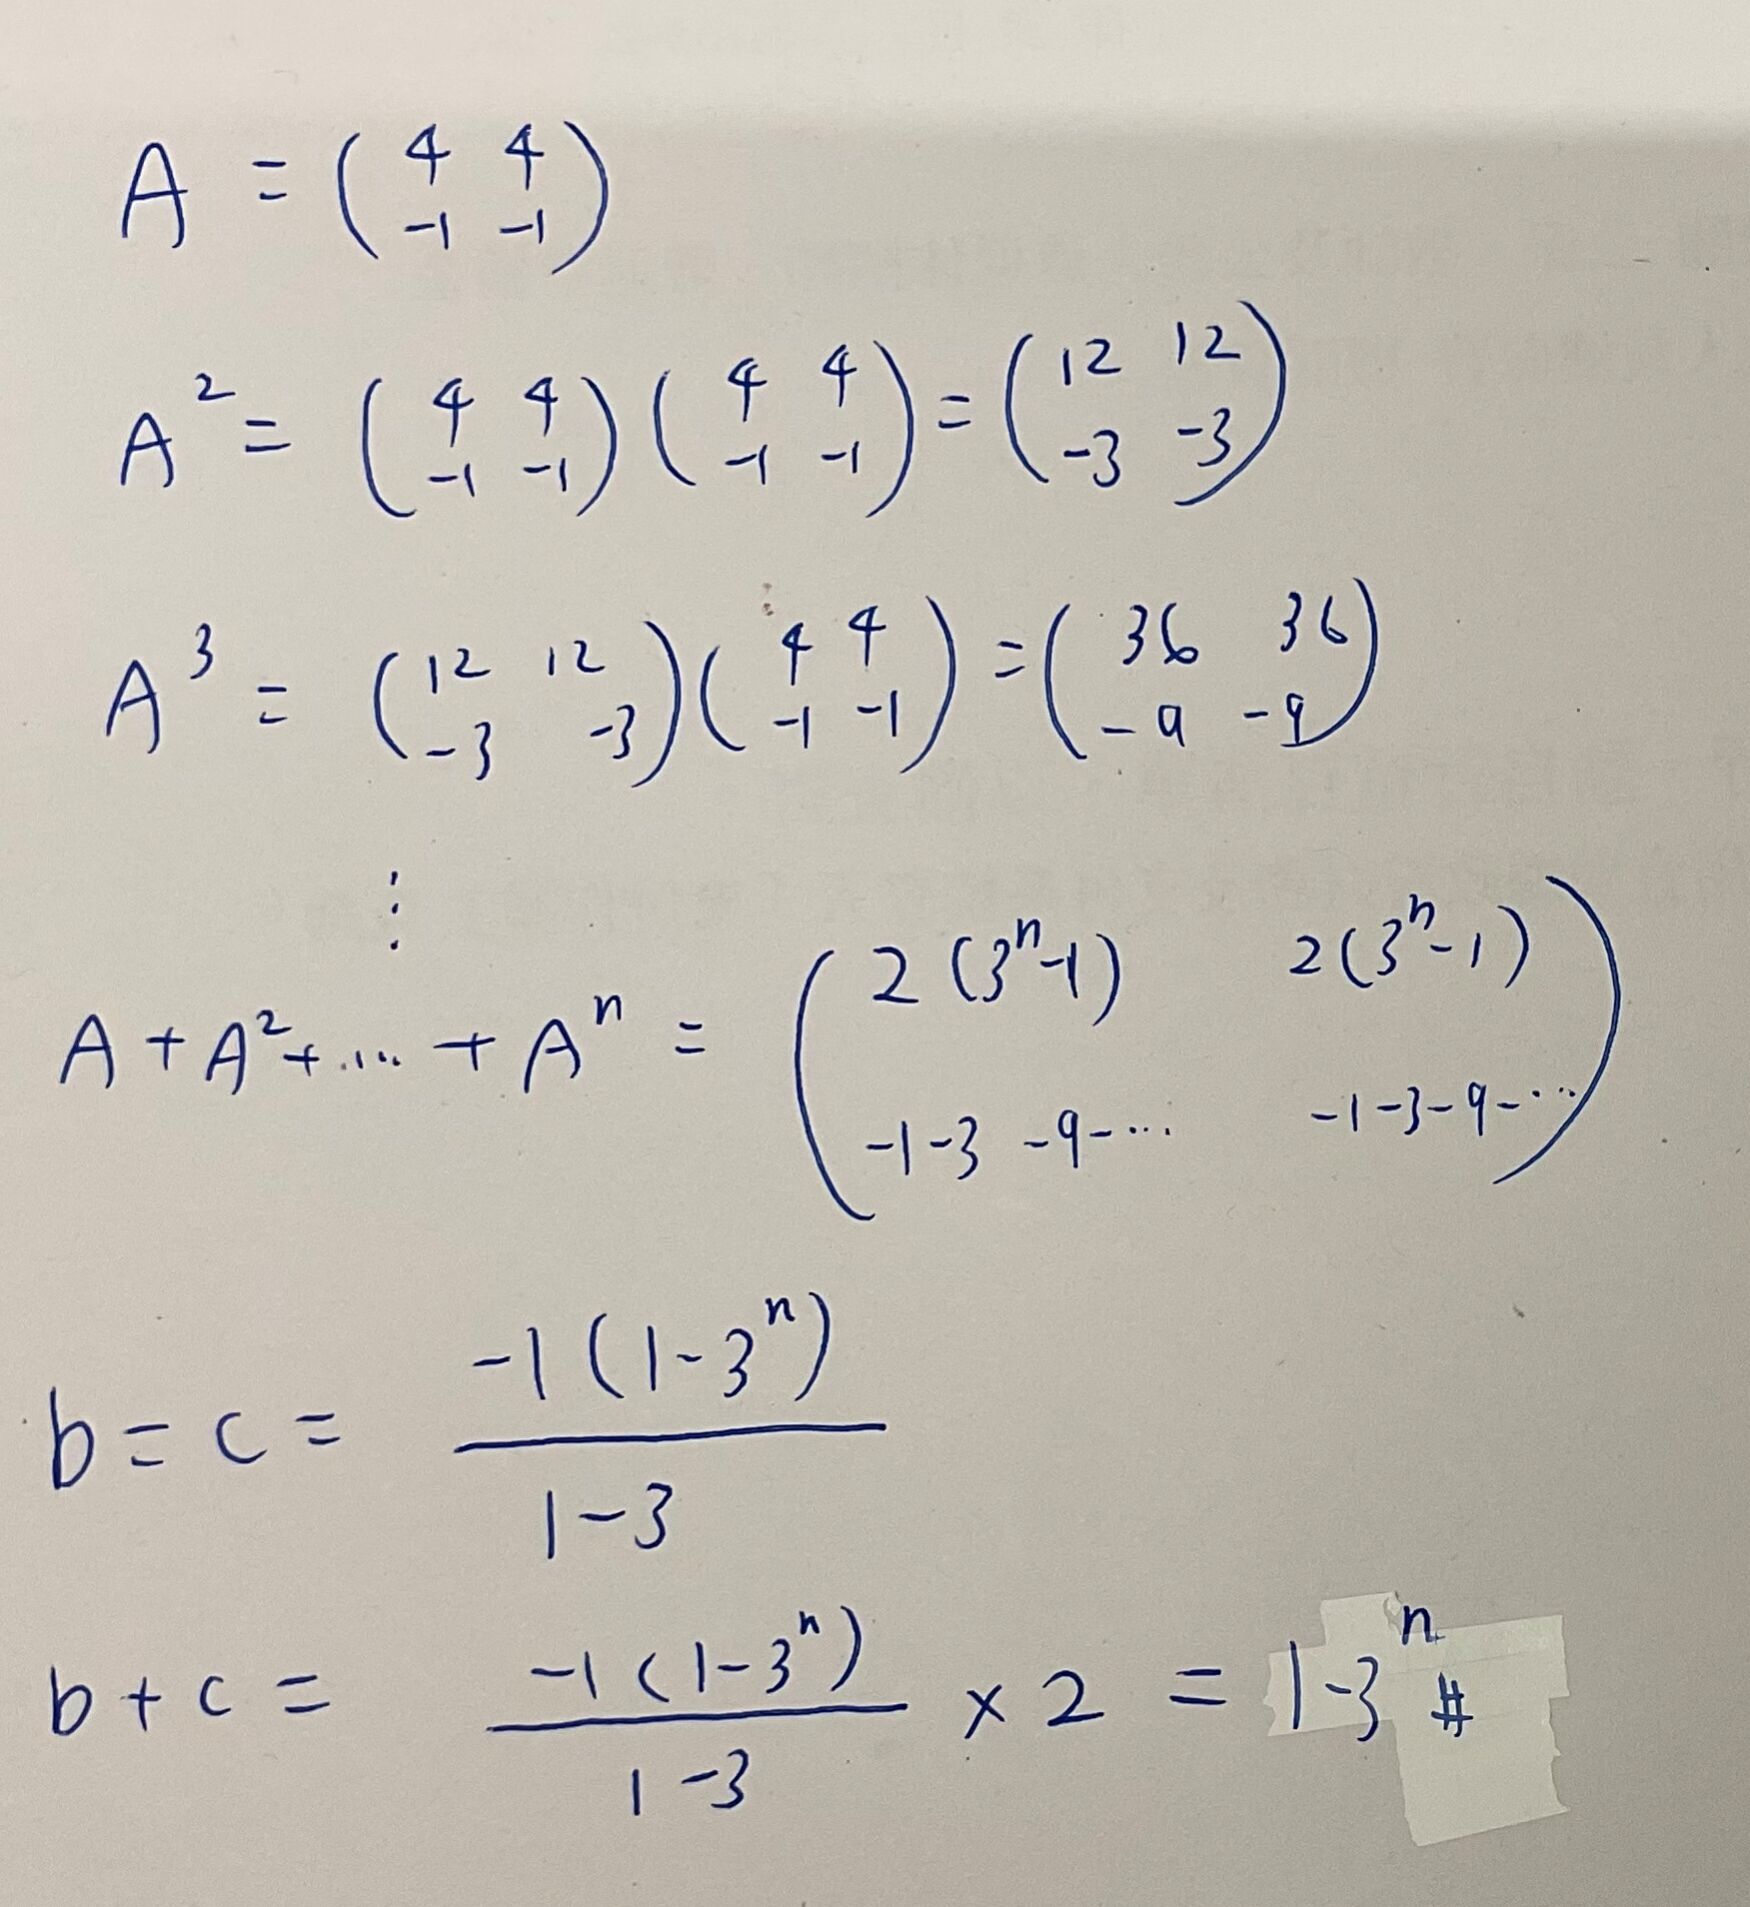 A = ( 4 4
-1 -1 )
A² = ( 4 4
-1 -1 ) ( 4 4
-1 -1 ) = ( 12 12
-3 -3 )
A³ = ( 12 12
-3 -3 ) ( 4 4
-1 -1 ) = ( 36 36
-9 -9 )
⋮
A + A² + ... + Aⁿ = ( 2(3ⁿ-1) 2(3ⁿ-1)
-1-3-9-... -1-3-9-... )
b = c = -1(1-3ⁿ) / 1-3
b + c = -1(1-3ⁿ) / 1-3 × 2 = 1-3ⁿ #